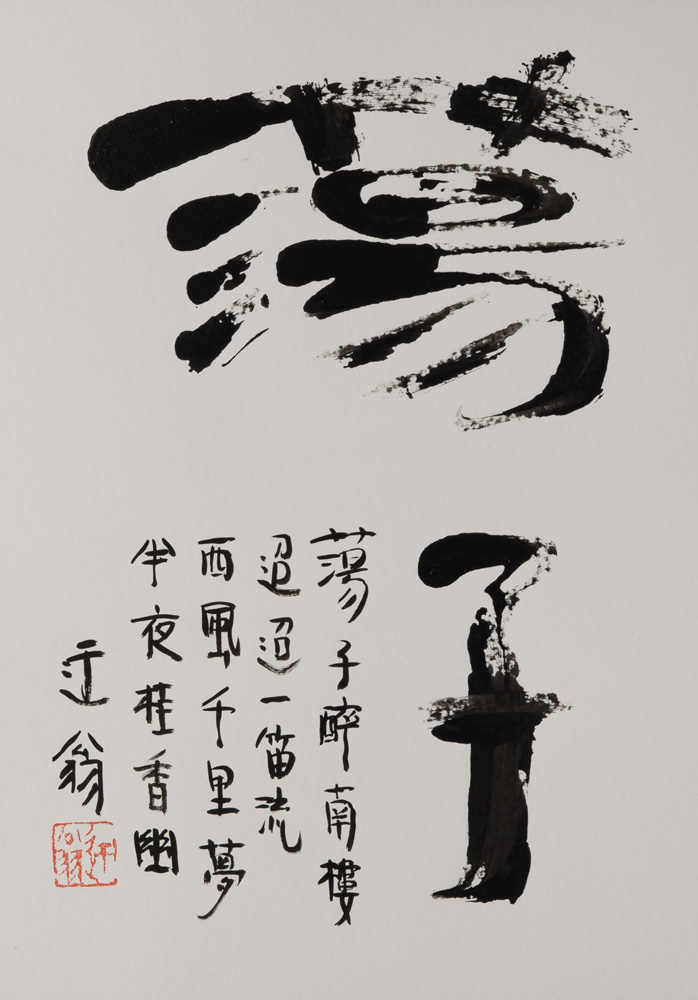 蕩子
蕩子醉南樓
迢迢一笛流
西風千里夢
半夜桂香幽
迂翁